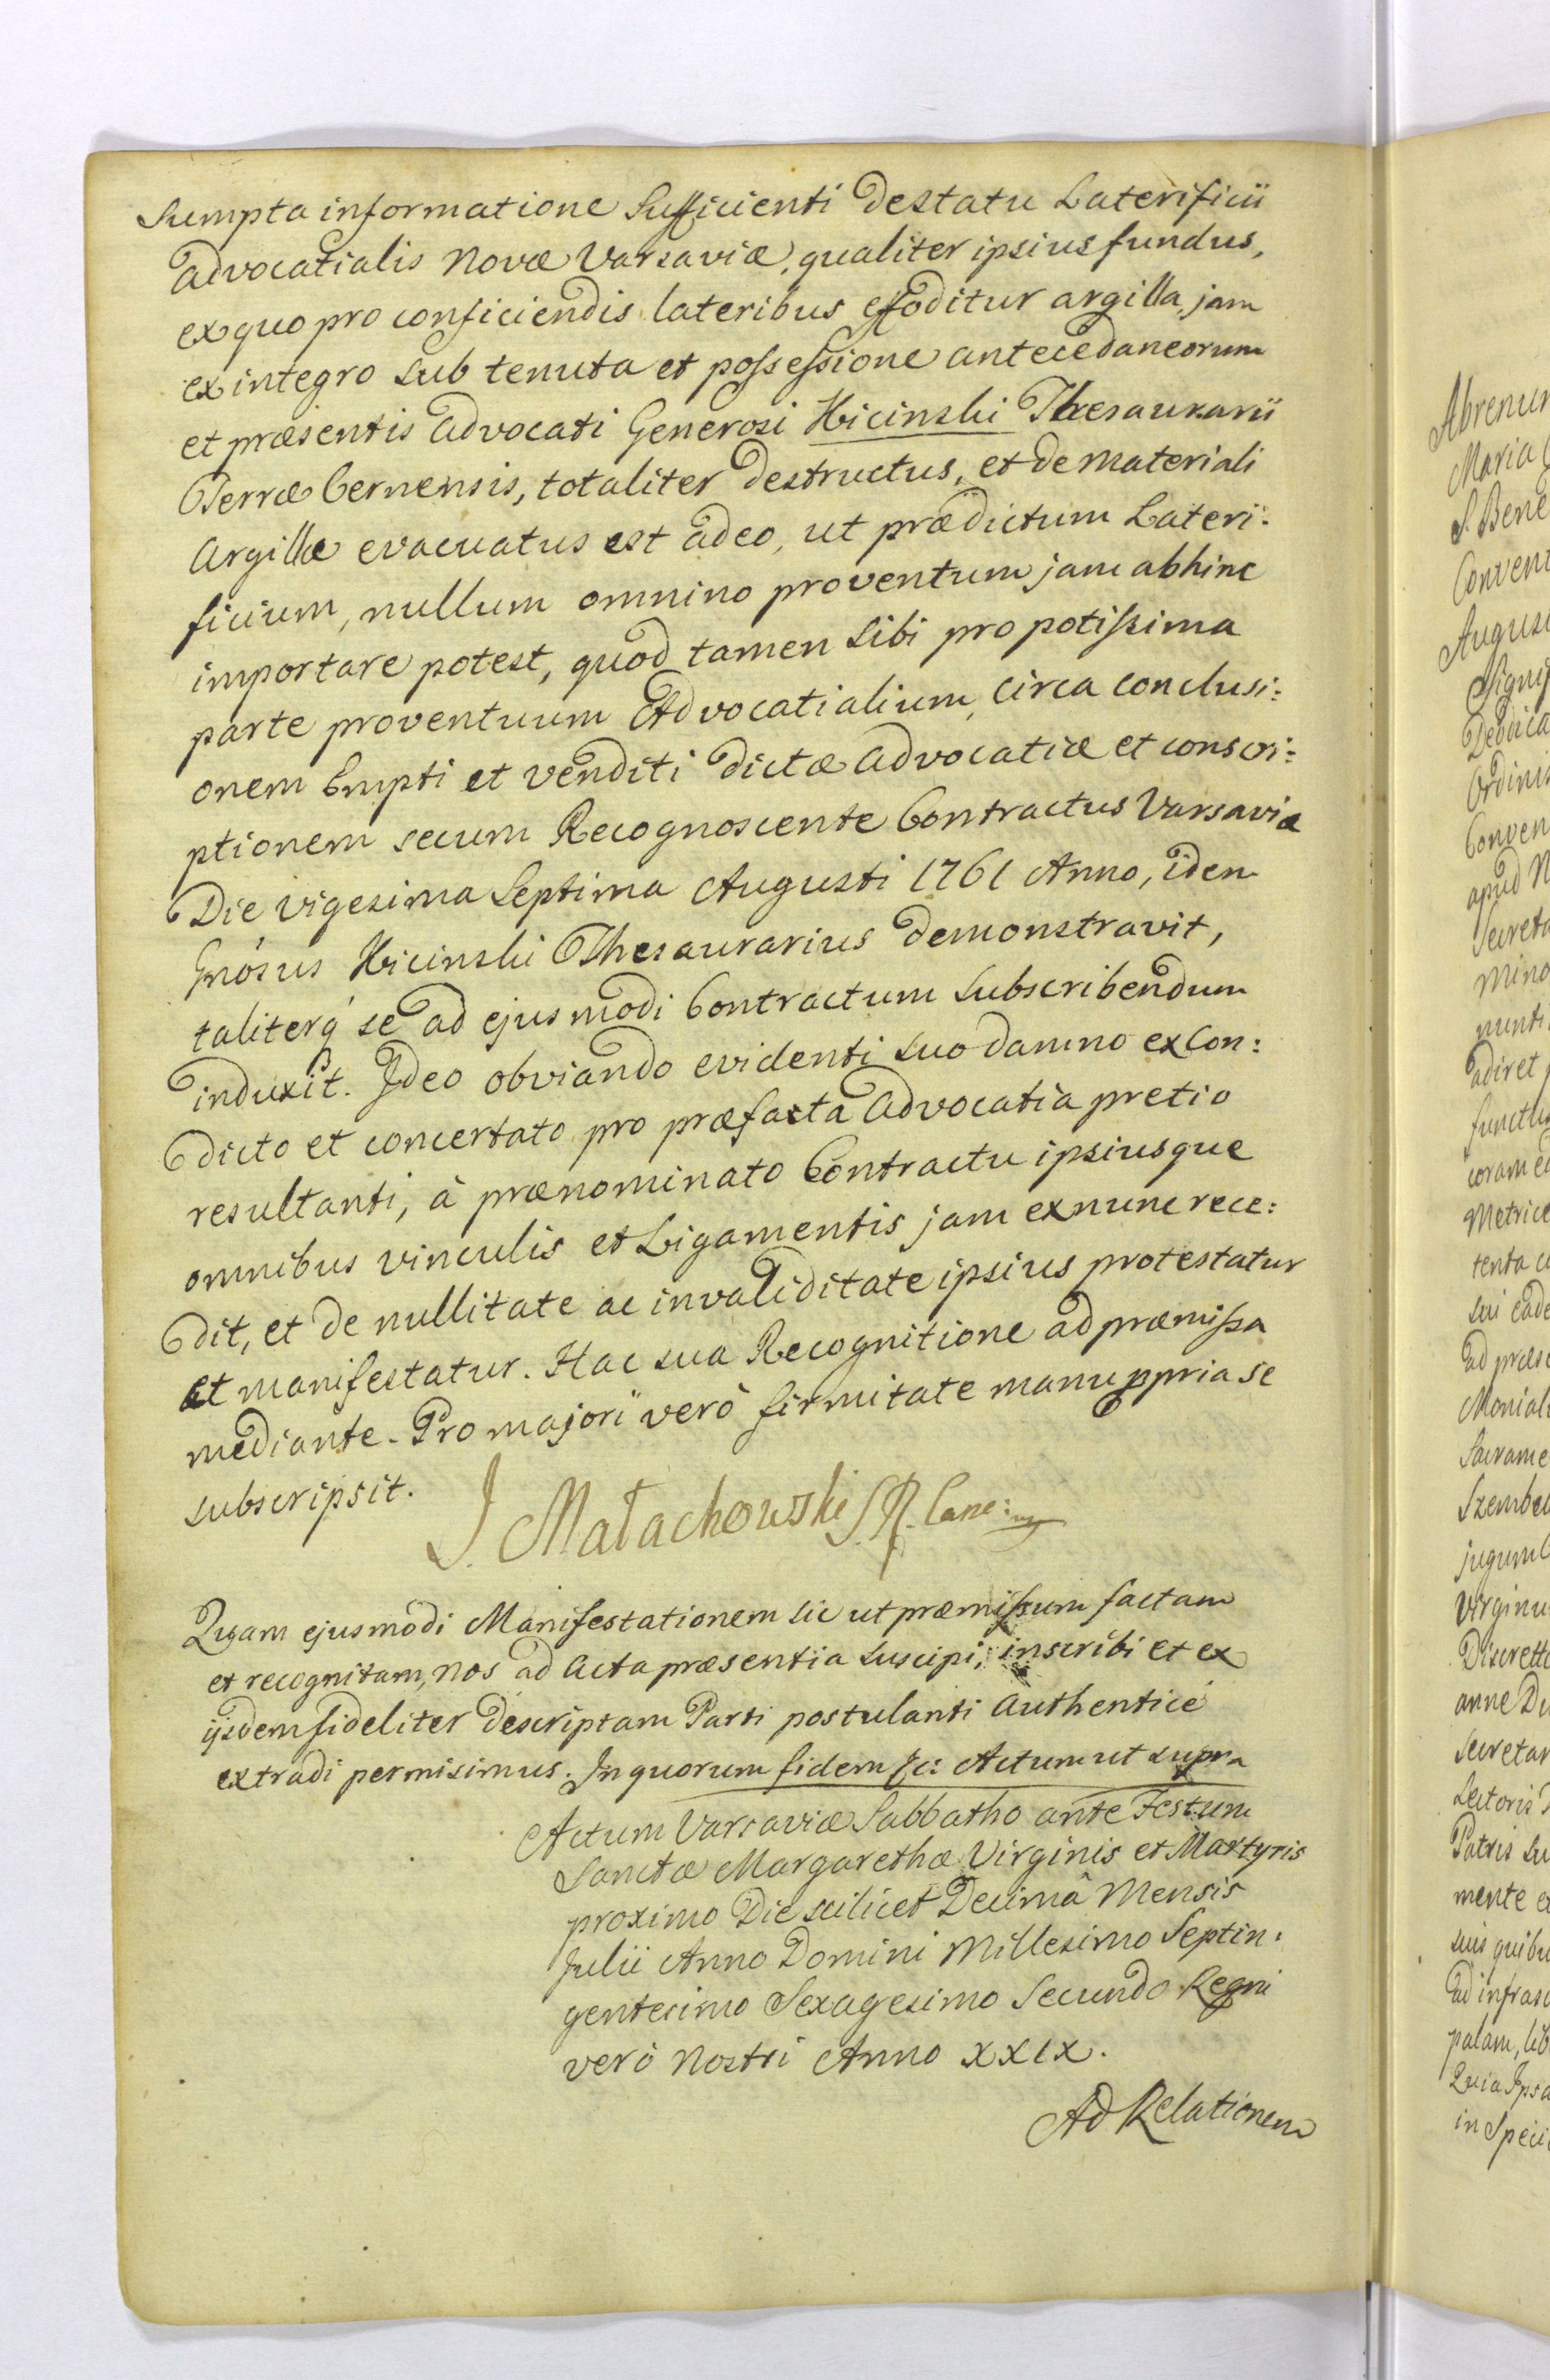 Sumpta informatione Sufficienti de statu Laterificii
advocatialis Novæ Varsaviæ, qualiter ipsius fundus,
ex quo pro conficiendis lateribus effoditur argilla, jam
ex integro sub tenuta et possessione antecedaneorum
et præsentis advocati Generosi Kicinski Thesaurarii
Terræ Cernensis, totaliter destructus, et de materiali
Argillæ evacuatus est adeo, ut prædictum Lateri:
ficium, nullum omnino proventum jam abhinc
importare potest, quod tamen sibi pro potissima
parte proventuum Advocatialium, circa conclusi:
onem Empti et venditi dictæ advocatiæ et conscri:
ptionem secum Recognoscente Contractus Varsaviæ
Die vigesima Septima Augusti 1761 Anno, idem
Gnosus Kicinski Thesaurarius demonstravit,
taliterq́ se ad ejusmodi Contractum subscribendum
induxit. Ideo obviando evidenti suo damno ex Con:
dicto et concertato pro præfacta advocatia pretio
resultanti, à prænominato Contractu ipsiusque
omnibus vinculis et Ligamentis jam ex nunc rece:
dit, et de nullitate ac invaliditate ipsius protestatur
et manifestatur. Hac sua Recognitione ad præmissa
mediante. Pro majori verò firmitate manu ppria se
subscripsit.
J. Małachowski S.R. Canc: mp
Quam ejusmodi Manifestationem sic ut præmissum factam
et recognitam, nos ad Acta præsentia suscipi, inscribi et ex
ijsdem fideliter descriptam Parti postulanti authenticè
extradi permisimus. In quorum fidem &c: Actum ut supra
Actum Varsaviæ Sabbatho ante Festum
Sanctæ Margarethæ Virginis et Martyris
proximo Die scilicet Decimâ Mensis
Julii Anno Domini Millesimo Septin:
gentesimo Sexagesimo Secundo Regni
verò Nostri Anno XXIX.
Ad Relationem
Abrenun
Maria
S. Bene
Convent
August
Signif
Dedica
Ordinis
Conven
apud N
Secreta
Mino
nunti
adiret
functus
coram ea
Metrice
tenta
sui eade
ad præse
Monial
Sacrame
Szembek
jugum
Virginu
Discrett
anne Du
Secretar
Lectoris
Patris Su
mente e
suis quibu
ad infrasc
palam, lib
Quia Ipsa
in Speci